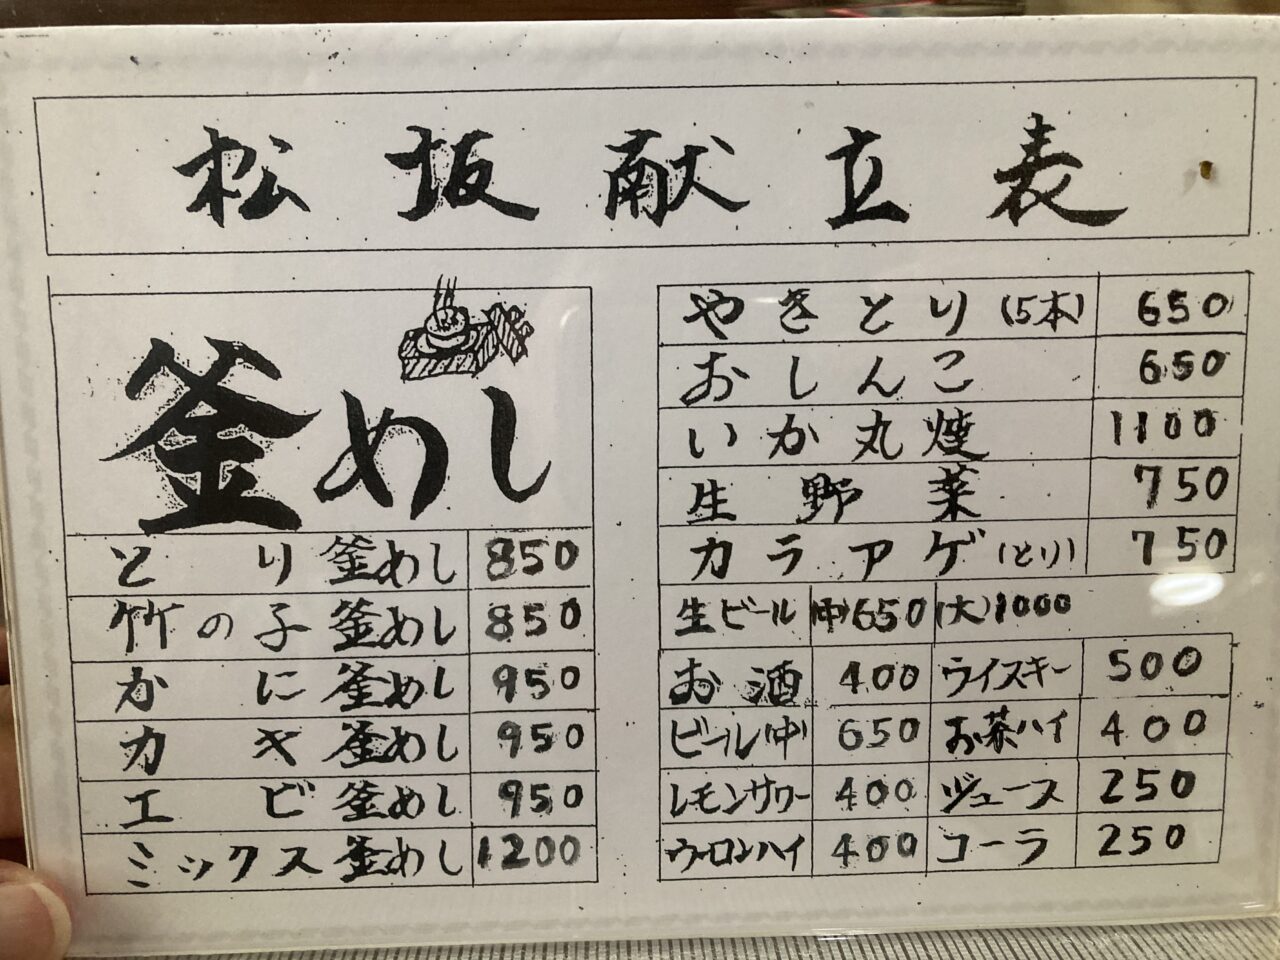 松坂献立表
釜めし
とり釜めし 850
竹の子釜めし 850
かに釜めし 950
カキ釜めし 950
エビ釜めし 950
ミックス釜めし 1200
やきとり(5本) 650
おしんこ 650
いか丸焼 1100
生野菜 750
カラアゲ(とり) 750
生ビール (中)650 (大)1000
お酒 400 ウイスキー 500
ビール(中) 650 お茶ハイ 400
レモンサワー 400 ジュース 250
ウーロンハイ 400 コーラ 250